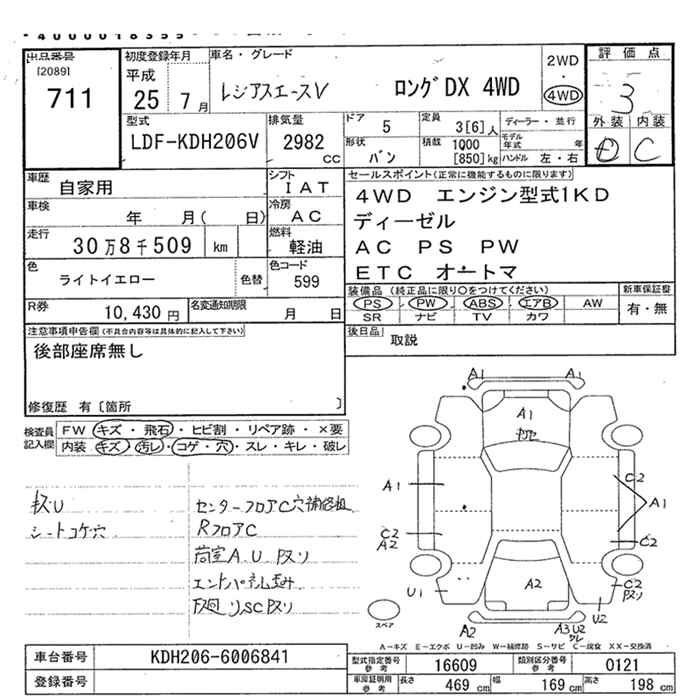 出品番号
[2089]
711
初度登録年月
平成
25 年 7 月
車名・グレード
レジアスエースV ロングDX 4WD
2WD
・
4WD
評価点
3
外装 内装
C
型式
LDF-KDH206V
排気量
2982
CC
ドア
5
定員
3[6]人
ディーラー・並行
形状
バン
積載
1000
[850]kg
モデル年式 年
ハンドル 左・右
車歴
自家用
シフト
IAT
車検
年 月( 日)
冷房
AC
走行
30万8千509 km
燃料
軽油
色
ライトイエロー
色替
色コード
599
R券
10,430 円
名変通知期限
月 日
セールスポイント(正常に機能するものに限ります)
4WD エンジン型式1KD
ディーゼル
AC PS PW
ETC オートマ
装備品(純正品に限り○をつけてください)
PS ・ PW ・ ABS ・ エアB ・ AW
SR ナビ TV カワ
新車保証書
有・無
後日品
取説
注意事項申告欄(不具合内容等は具体的に記入して下さい)
後部座席無し
修復歴 有[箇所 ]
検査員記入欄
FW キズ・飛石・ヒビ割・リペア跡・×要
内装 キズ・汚レ・コゲ・穴・スレ・キレ・破レ
キズU
シートコゲ穴
センターフロアC穴補修粗
RフロアC
荷室A.U Pヌリ
エンドパネル歪み
下廻りSC Pヌリ
A1 A1
A1
A1
C2
A1
C2
A2
C2
U1
A2
C2
Pヌリ
U2
A2
A3 U2
スペア
A-キズ E-エクボ U-凹み W-補修跡 S-サビ C-腐食 XX-交換済
車台番号
KDH206-6006841
登録番号
型式指定番号
参考
16609
類別区分番号
参考
0121
車庫証明用
参考
長さ 469 cm 幅 169 cm 高さ 198 cm